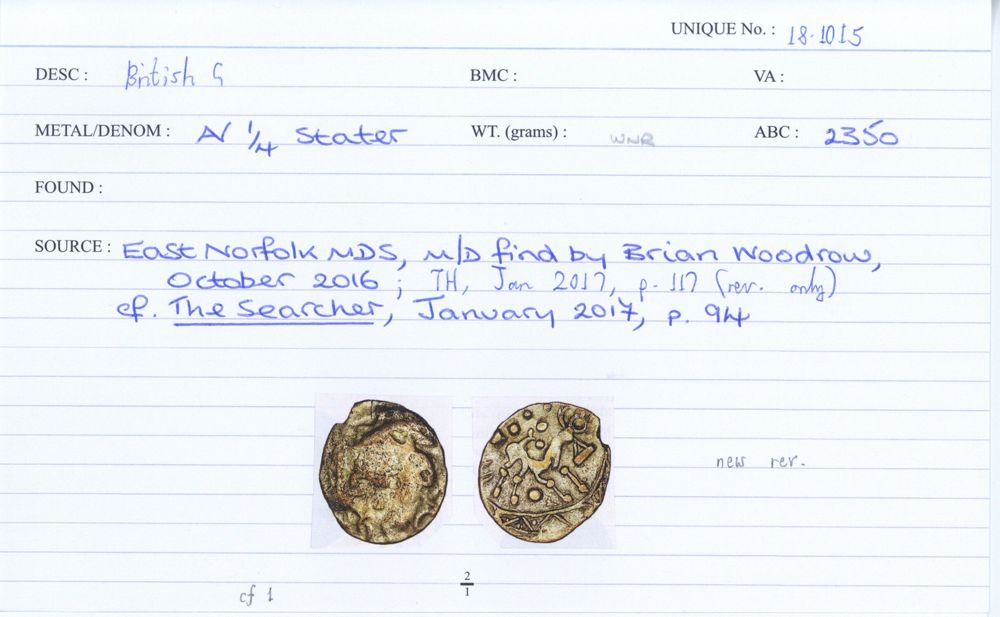 UNIQUE No. : 18-1015
DESC : British G BMC : VA :
METAL/DENOM : AV 1/4 Stater WT. (grams) : WNR ABC : 2350
FOUND :
SOURCE : East Norfolk MDS, M/D find by Brian Woodrow,
October 2016 ; TH, Jan 2017, p. 117 (rev. only)
cf. The Searcher, January 2017, p. 94
new rev.
2
1
cf 1